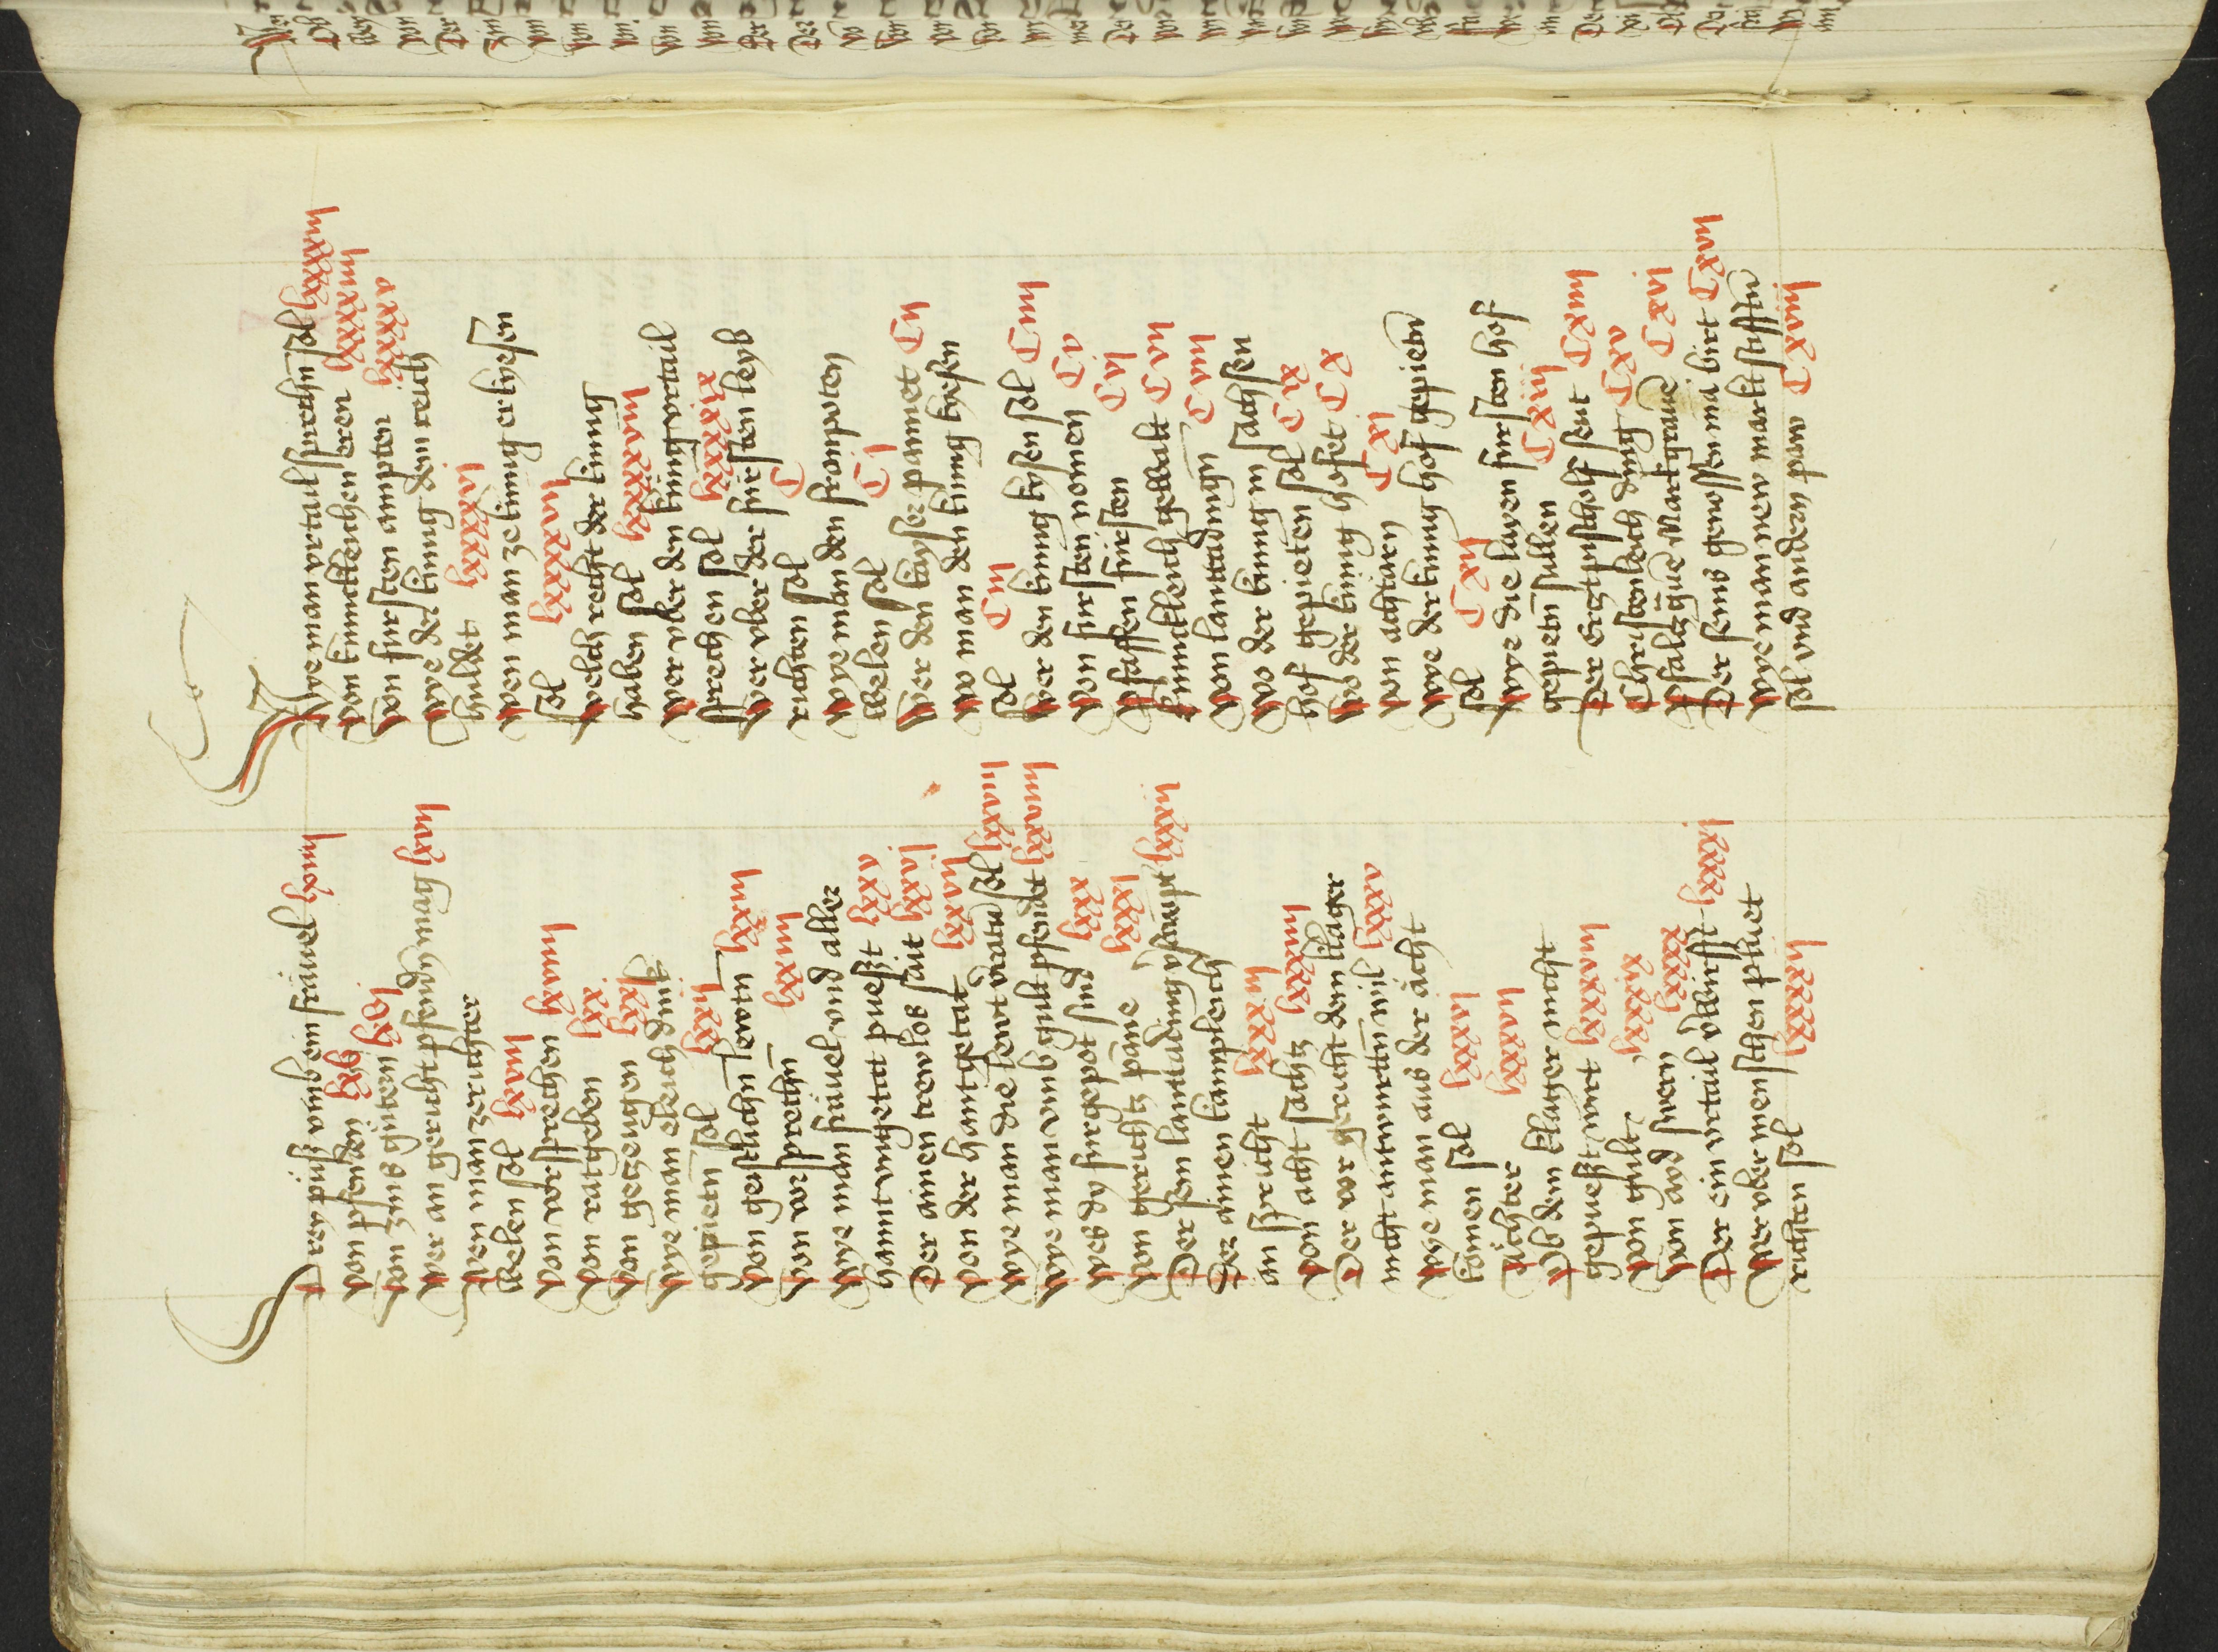 Drey püß vmb ein fräuel lxiiij
von pfenden lxv
von zins gütern lxvj
wer an gericht pfendn mag lxvij
wen man ze richter
welen sol lxviij
von vorsprechen lxviiij
von ratgeben lxx
von getzeugen lxxj
wye man eleich dink
gepietn sol lxxij
von geistlichn lewtn lxxiij
von vorsprechn lxxiiij
wye man fräuel vnd aller
hannt vngetat püeßt lxxv
Der ainen trewlos sait lxxvj
von der hantgetat lxxvij
wye man die lewt vratn sol lxxviij
wye man vmb gult pfendet lxxviiij
wes dy furgepot sind lxxx
von gerichtz pane lxxxj
Der sein lanntading vsawpt lxxxij
Der ainen kampleich
an spricht lxxxiij
von acht sachtz lxxxiiij
Der vor gericht dem klager
nicht antwurttn wil lxxxv
wye man aus der ächt
komen sol lxxxvj
Richter lxxxvij
Ob dem klager nicht
gepueßt wirt lxxxviij
von gult lxxxix
von ayd swern lxxxx
Der ein vrtail v̈wirfft lxxxxj
wer vber menschen pluet
richten sol lxxxxij
Wye man vrtail sprechn sol lxxxxiij
von künicklichen eren lxxxxiiij
von fürsten ampten lxxxxv
wye der künig dem reich
huldet lxxxxvj
wen man ze künig erkyesen
sol lxxxxvij
welch recht der künig
haben sol lxxxxviij
wer vber den künig vrtail
sprechen sol lxxxxix
wer vber der fürsten leyb
richten sol C
wye man den fronpoten
welen sol Cj
wer den kayser pannet Cij
wo man den künig kyesen
sol Ciij
wer den künig kysen sol Ciiij
von fürsten nomen Cv
Pfaffen fürsten Cvj
künicklich gewalt Cvij
von lanttadingn Cviij
wo der künig in sachsen
hof gepieten sol Cix
wo der künig hofet Cx
von achtärn Cxj
wye der künig hof gepietn
sol Cxij
wye die layen fürsten hof
gepietn sullen Cxiij
Der Ertzpischolf sent Cxiiij
Christenleich ding Cxv
Pfaltzgraue Markgraue Cxvj
Der seins genossen nit birt Cxvij
wye man new markt stifftn
sol vnd andern paw Cxviij